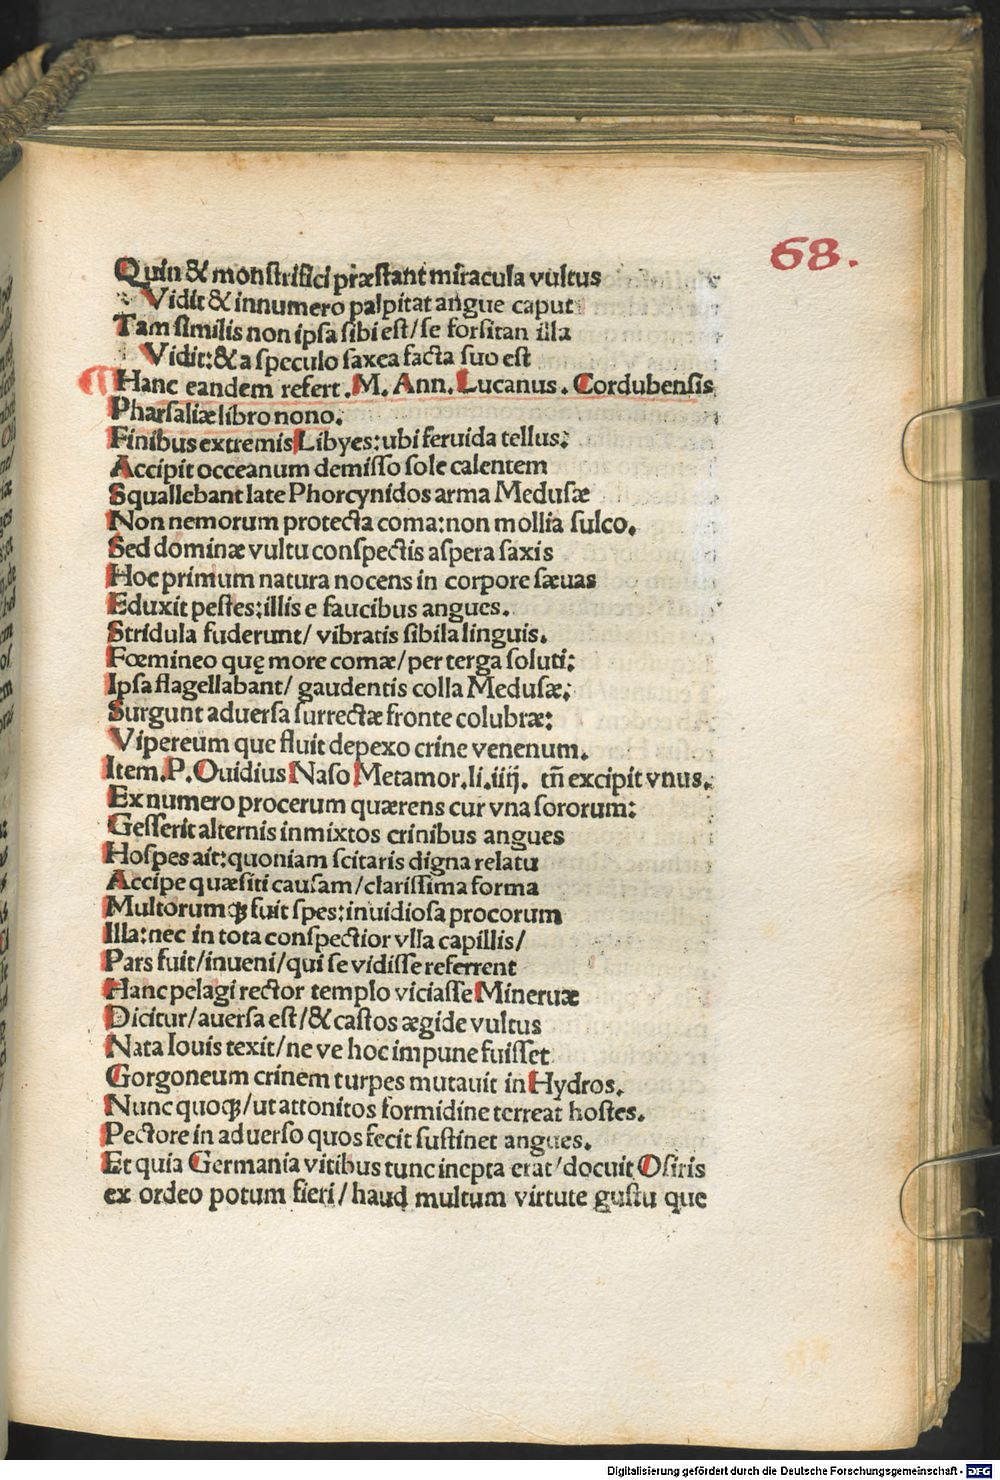 68.
Quin & monstrifici præstant miracula vultus
Vidit & innumero palpitat angue caput
Tam similis non ipsa sibi est/se forsitan illa
Vidit:& a speculo saxea facta suo est
Hanc eandem refert. M. Ann. Lucanus. Cordubensis
Pharsaliæ libro nono.
Finibus extremis Libyes: ubi feruida tellus:
Accipit occeanum demisso sole calentem
Squallebant late Phorcynidos arma Medusæ
Non nemorum protecta coma: non mollia sulco.
Sed dominæ vultu conspectis aspera saxis
Hoc primum natura nocens in corpore sæuas
Eduxit pestes: illis e faucibus angues.
Stridula fuderunt/ vibratis sibila linguis.
Fœmineo quę more comæ/ per terga soluti:
Ipsa flagellabant/ gaudentis colla Medusæ:
Surgunt aduersa surrectæ fronte colubræ:
Vipereum que fluit depexo crine venenum.
Item. P. Ouidius Naso Metamor. li. iiij. tñ excipit vnus.
Ex numero procerum quærens cur vna sororum:
Gesserit alternis inmixtos crinibus angues
Hospes ait: quoniam scitaris digna relatu
Accipe quæsiti causam/clarissima forma
Multorumqꝫ fuit spes: inuidiosa procorum
Illa: nec in tota conspectior vlla capillis/
Pars fuit/inueni/qui se vidisse referrent
Hanc pelagi rector templo viciasse Mineruæ
Dicitur/auersa est/& castos ægide vultus
Nata Iouis texit/ne ve hoc impune fuisset
Gorgoneum crinem turpes mutauit in Hydros.
Nunc quoqꝫ/ut attonitos formidine terreat hostes.
Pectore in aduerso quos fecit sustinet angues.
Et quia Germania vitibus tunc inepta erat/docuit Osiris
ex ordeo potum fieri/haud multum virtute gustu que
Digitalisierung gefördert durch die Deutsche Forschungsgemeinschaft - DFG